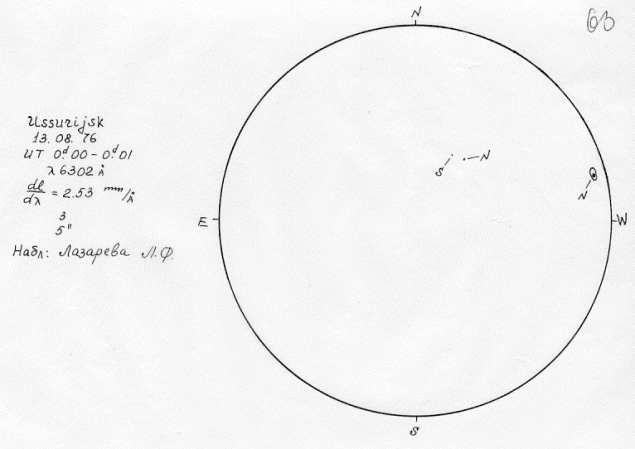 Ussurijsk
13.08.76
UT 0ᵈ.00 - 0ᵈ.01
λ 6302 Å
dl/dλ = 2.53 mm/Å
3
5"
Набл: Лазарева Л.Ф.
N
S N
N
E W
S